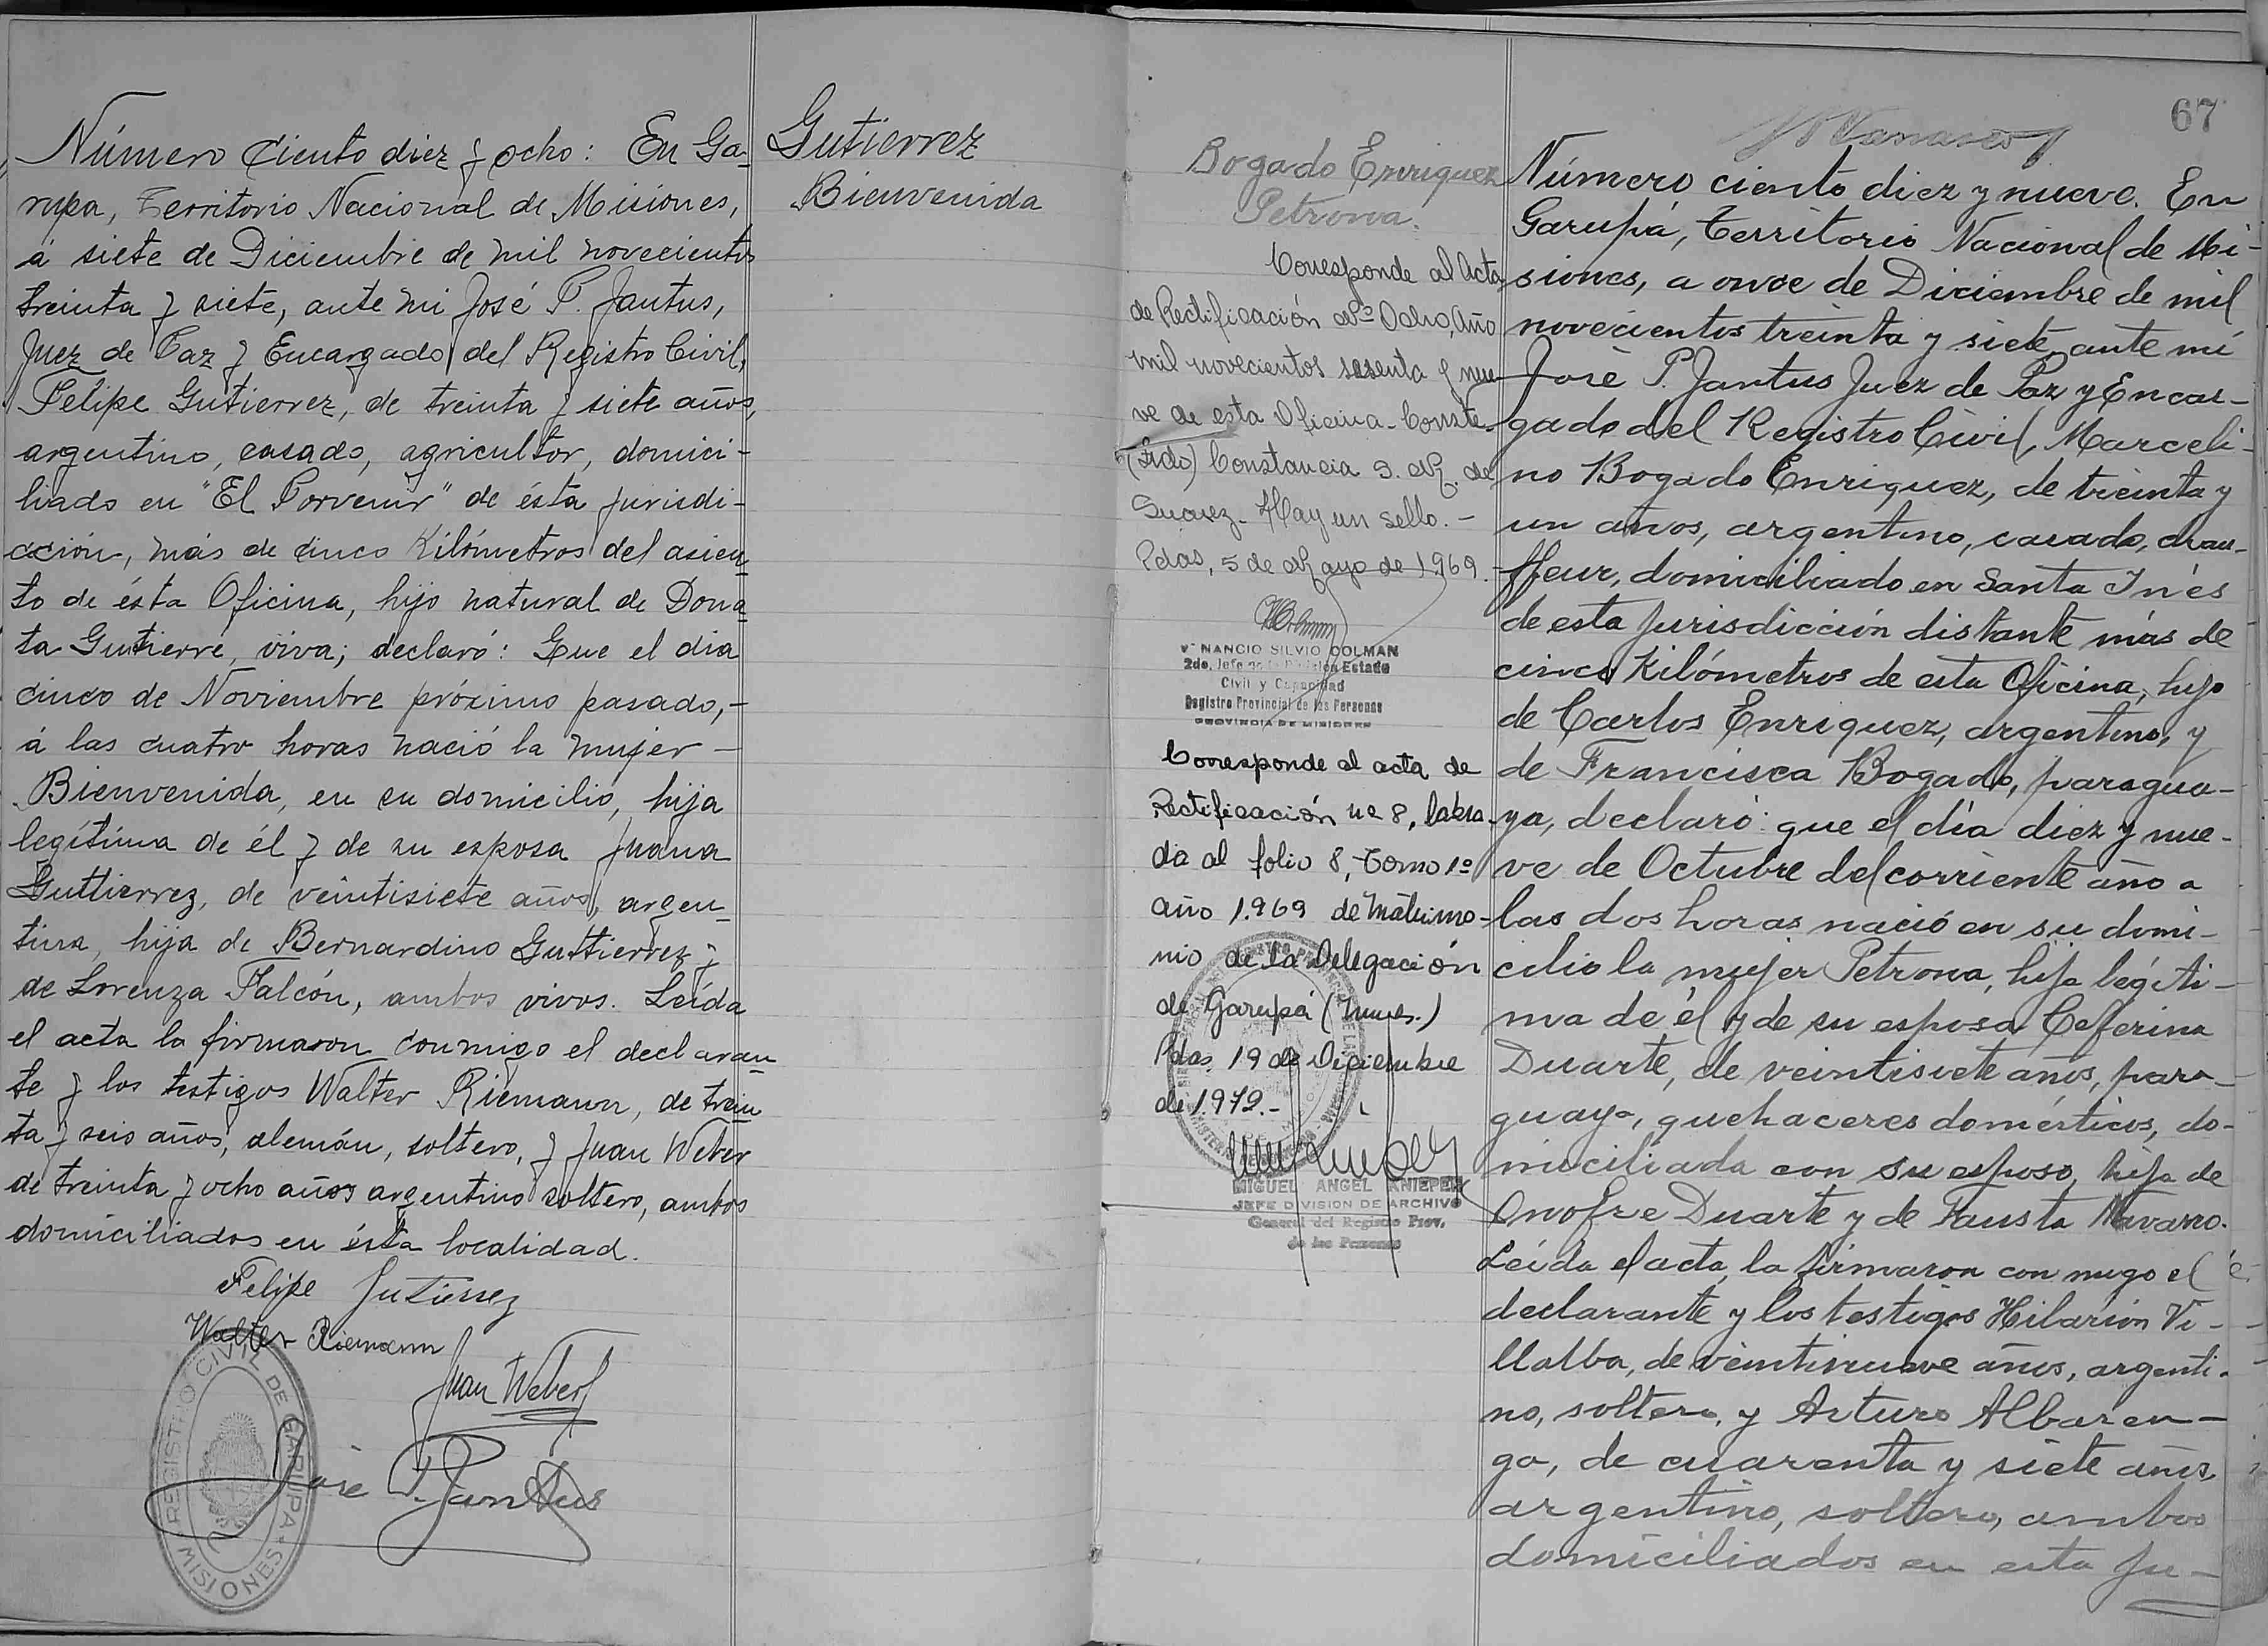 Número ciento diez y ocho: En Ga-
rupa, Territorio Nacional de Misiones,
á siete de Diciembre de mil novecientos
treinta y siete, ante mi José P. Jantus,
Juez de Paz y Encargado del Registro Civil,
Felipe Gutierrez, de treinta y siete años,
argentino, casado, agricultor, domici-
liado en "El Porvenir" de ésta jurisdi-
cción, más de cinco Kilómetros del asien-
to de ésta Oficina, hijo natural de Dona-
ta Gutierre, viva; declaró: Que el dia
cinco de Noviembre próximo pasado,-
á las cuatro horas nació la mujer -
Bienvenida, en su domicilio, hija
legítima de él y de su esposa Juana
Guttierrez, de veintisiete años, argen-
tina, hija de Bernardino Guttierrez y
de Lorenza Falcón, ambos vivos. Leída
el acta la firmaron conmigo el declaran-
te y los testigos Walter Riemann, de trein-
ta y seis años, alemán, soltero, y Juan Weber
de treinta y ocho años argentino soltero, ambos
domiciliados en ésta localidad.
Felipe Gutierrez
Walter Riemann
Juan Weber
José P. Jantus
REGISTRO CIVIL DE GARUPA
MISIONES
Gutierrez
Bienvenida
Bogado Enriquez
Petrona.
Corresponde al Acta
de Rectificación Nº Ocho, Año
mil novecientos sesenta y nue-
ve de esta Oficina - Conste.
(Fdo) Constancia S. M. de
Suarez - Hay un sello. -
Pdas, 5 de Mayo de 1969.
VENANCIO SILVIO COLMAN
2do. Jefe de la División Estado
Civil y Capacidad
Registro Provincial de las Personas
PROVINCIA DE MISIONES
Corresponde al acta de
Rectificación nº 8, labra-
da al folio 8, Tomo 1º
año 1.969 de Matrimo-
nio de la Delegación
de Garupá (Mnes.)
Pdas. 19 de Diciembre
de 1.972.-
MIGUEL ANGEL KNIEPER
JEFE DIVISION DE ARCHIVO
General del Registro Prov.
de las Personas
67
Número ciento diez y nueve. En
Garupá, Territorio Nacional de Mi-
siones, a once de Diciembre de mil
novecientos treinta y siete, ante mí
José P. Jantus Juez de Paz y Encar-
gado del Registro Civil, Marceli-
no Bogado Enriquez, de treinta y
un años, argentino, casado, chau-
ffeur, domiciliado en Santa Inés
de esta jurisdicción distante más de
cinco Kilómetros de esta Oficina, hijo
de Carlos Enriquez, argentino, y
de Francisca Bogado, paragua-
ya, declaró: que el día diez y nue-
ve de Octubre del corriente año a
las dos horas nació en su domi-
cilio la mujer Petrona, hija légiti-
ma de él y de su esposa Ceferina
Duarte, de veintisiete años, para-
guaya, quehaceres domésticos, do-
miciliada con su esposo, hija de
Onofre Duarte y de Fausta Navarro.
Leída el acta, la firmaron con migo el
declarante y los testigos Hilarión Vi-
llalba, de veintinueve años, argenti-
no, soltero, y Arturo Albaren-
ga, de cuarenta y siete años,
argentino, soltero, ambos
domiciliados en esta ju-